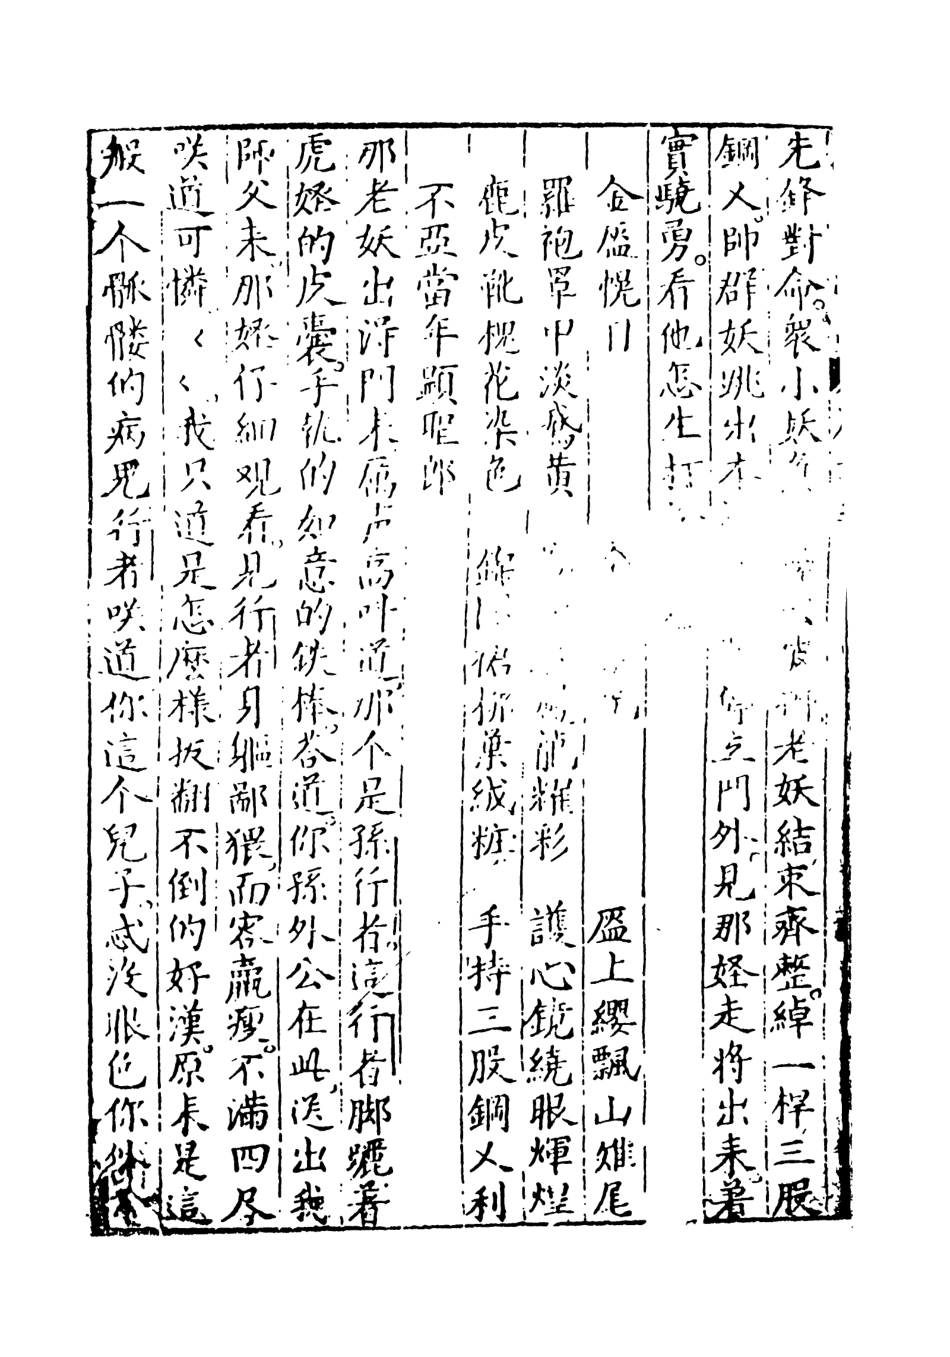 先鋒對命衆小妖 老妖結束齊整綽一桿三股
鋼乂帥群妖跳出本 立門外見那妖走將出來着
實驍勇看他怎生打
金盔愰日 盔上纓飄山雉尾
羅袍罩甲淡鵞黄 耀彩 護心鏡繞眼輝煌
鹿皮靴槐花染色 柳葉絨粧 手持三股鋼乂利
不亞當年顯聖郎
那老妖出得門來厲声高叫道那个是孫行者這行者脚躧着
虎怪的皮囊手執的如意的鉄棒荅道你孫外公在此送出我
師父来那怪仔細观看見行者身軀鄙猥而容羸瘦不滿四尺
咲道可憐〱〱我只道是怎麽樣扳翻不倒的好漢原來是這
般一个骷髏的病鬼行者咲道你這个兒子忒没眼色你